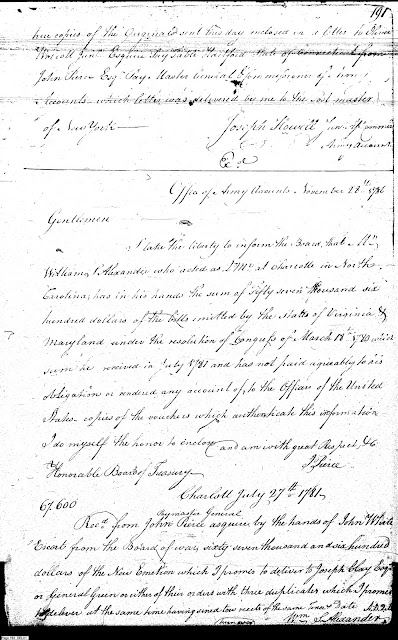 191
true copies of the Original sent this day enclosed in a letter to
Esquire Pay Table Hartford State of Connecticut from
John Pierce Esqr Pay Master General & Commissioner of Army
Accounts which letter was delivered by me to the Post master
of New York
Joseph Howell Junr
Army Accounts
Office of Army Accounts November 28th 1786
Gentlemen
I take the liberty to inform the Board, that Mr
William Alexander who acted as at Charlotte in North
Carolina, has in his hands the sum of fifty seven thousand six
hundred dollars of the bills emitted by the States of Virginia &
Maryland under the resolution of Congress of March 18th 1780 which
sum he received in July 1781 and has not paid agreeably to his
obligation or rendered any account of, to the Officer of the United
States. copies of the vouchers which authenticate this information
I do myself the honor to enclose and am with great Respect, &c
J Pierce
Honorable Board of Treasury
Charlott July 27th 1781
67.600
Paymaster General
Recd. from John Pierce esquire by the hands of John White
from the Board of war sixty seven thousand and six hundred
dollars of the New Emotion which I promes to deliver to Joseph Clay Esqr
or General Green or ither of their orders with three duplicates which I promes
to delever at the same time having sined two of the same Tenor & Date
Wm Alexander